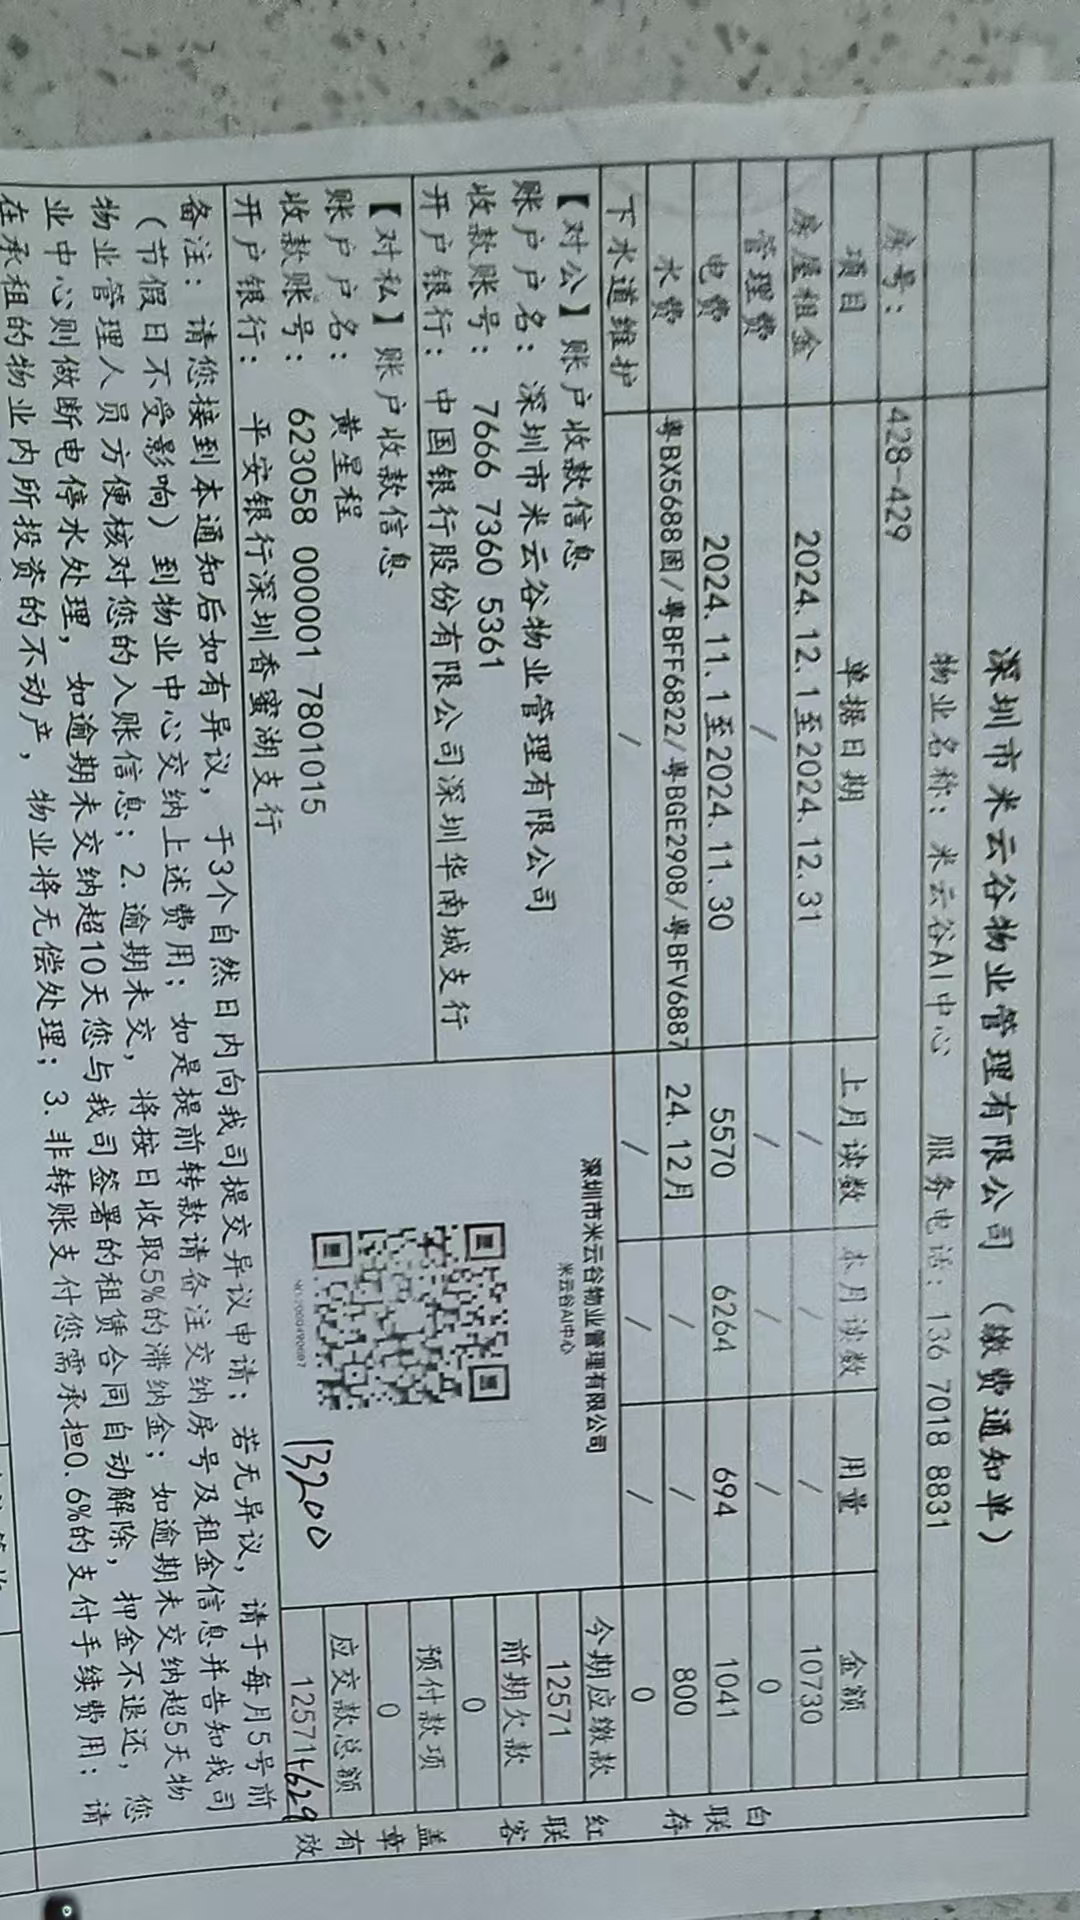 深圳市米云谷物业管理有限公司（缴费通知单）
物业名称：米云谷AI中心 服务电话：136 7018 8831
房号： 428-429
项目 单据日期 上月读数 本月读数 用量 金额
房屋租金 2024.12.1至2024.12.31 / / / 10730
管理费 / / / / 0
电费 2024.11.1至2024.11.30 5570 6264 694 1041
水费 粤BX5688圈/粤BFF6822/粤BGE2908/粤BFV6887 24.12月 / / 800
下水道维护 / / / / 0
【对公】账户收款信息
账户户名：深圳市米云谷物业管理有限公司
收款账号：7666 7360 5361
开户银行：中国银行股份有限公司深圳华南城支行
【对私】账户收款信息
账户户名：黄星程
收款账号：623058 000001 7801015
开户银行：平安银行深圳香蜜湖支行
深圳市米云谷物业管理有限公司
米云谷AI中心
13200
今期应缴款
12571
前期欠款
0
预付款项
0
应交款总额
12571+629
白联存
红联客
盖章有效
备注：请您接到本通知后如有异议，于3个自然日内向我司提交异议申请；若无异议，请于每月5号前
（节假日不受影响）到物业中心交纳上述费用；如是提前转款请备注交纳房号及租金信息并告知我司
物业管理人员方便核对您的入账信息；2.逾期未交，将按日收取5%的滞纳金；如逾期未交纳超5天物
业中心则做断电停水处理，如逾期未交纳超10天您与我司签署的租赁合同自动解除，押金不退还，您
在承租的物业内所投资的不动产，物业将无偿处理；3.非转账支付您需承担0.6%的支付手续费用；请